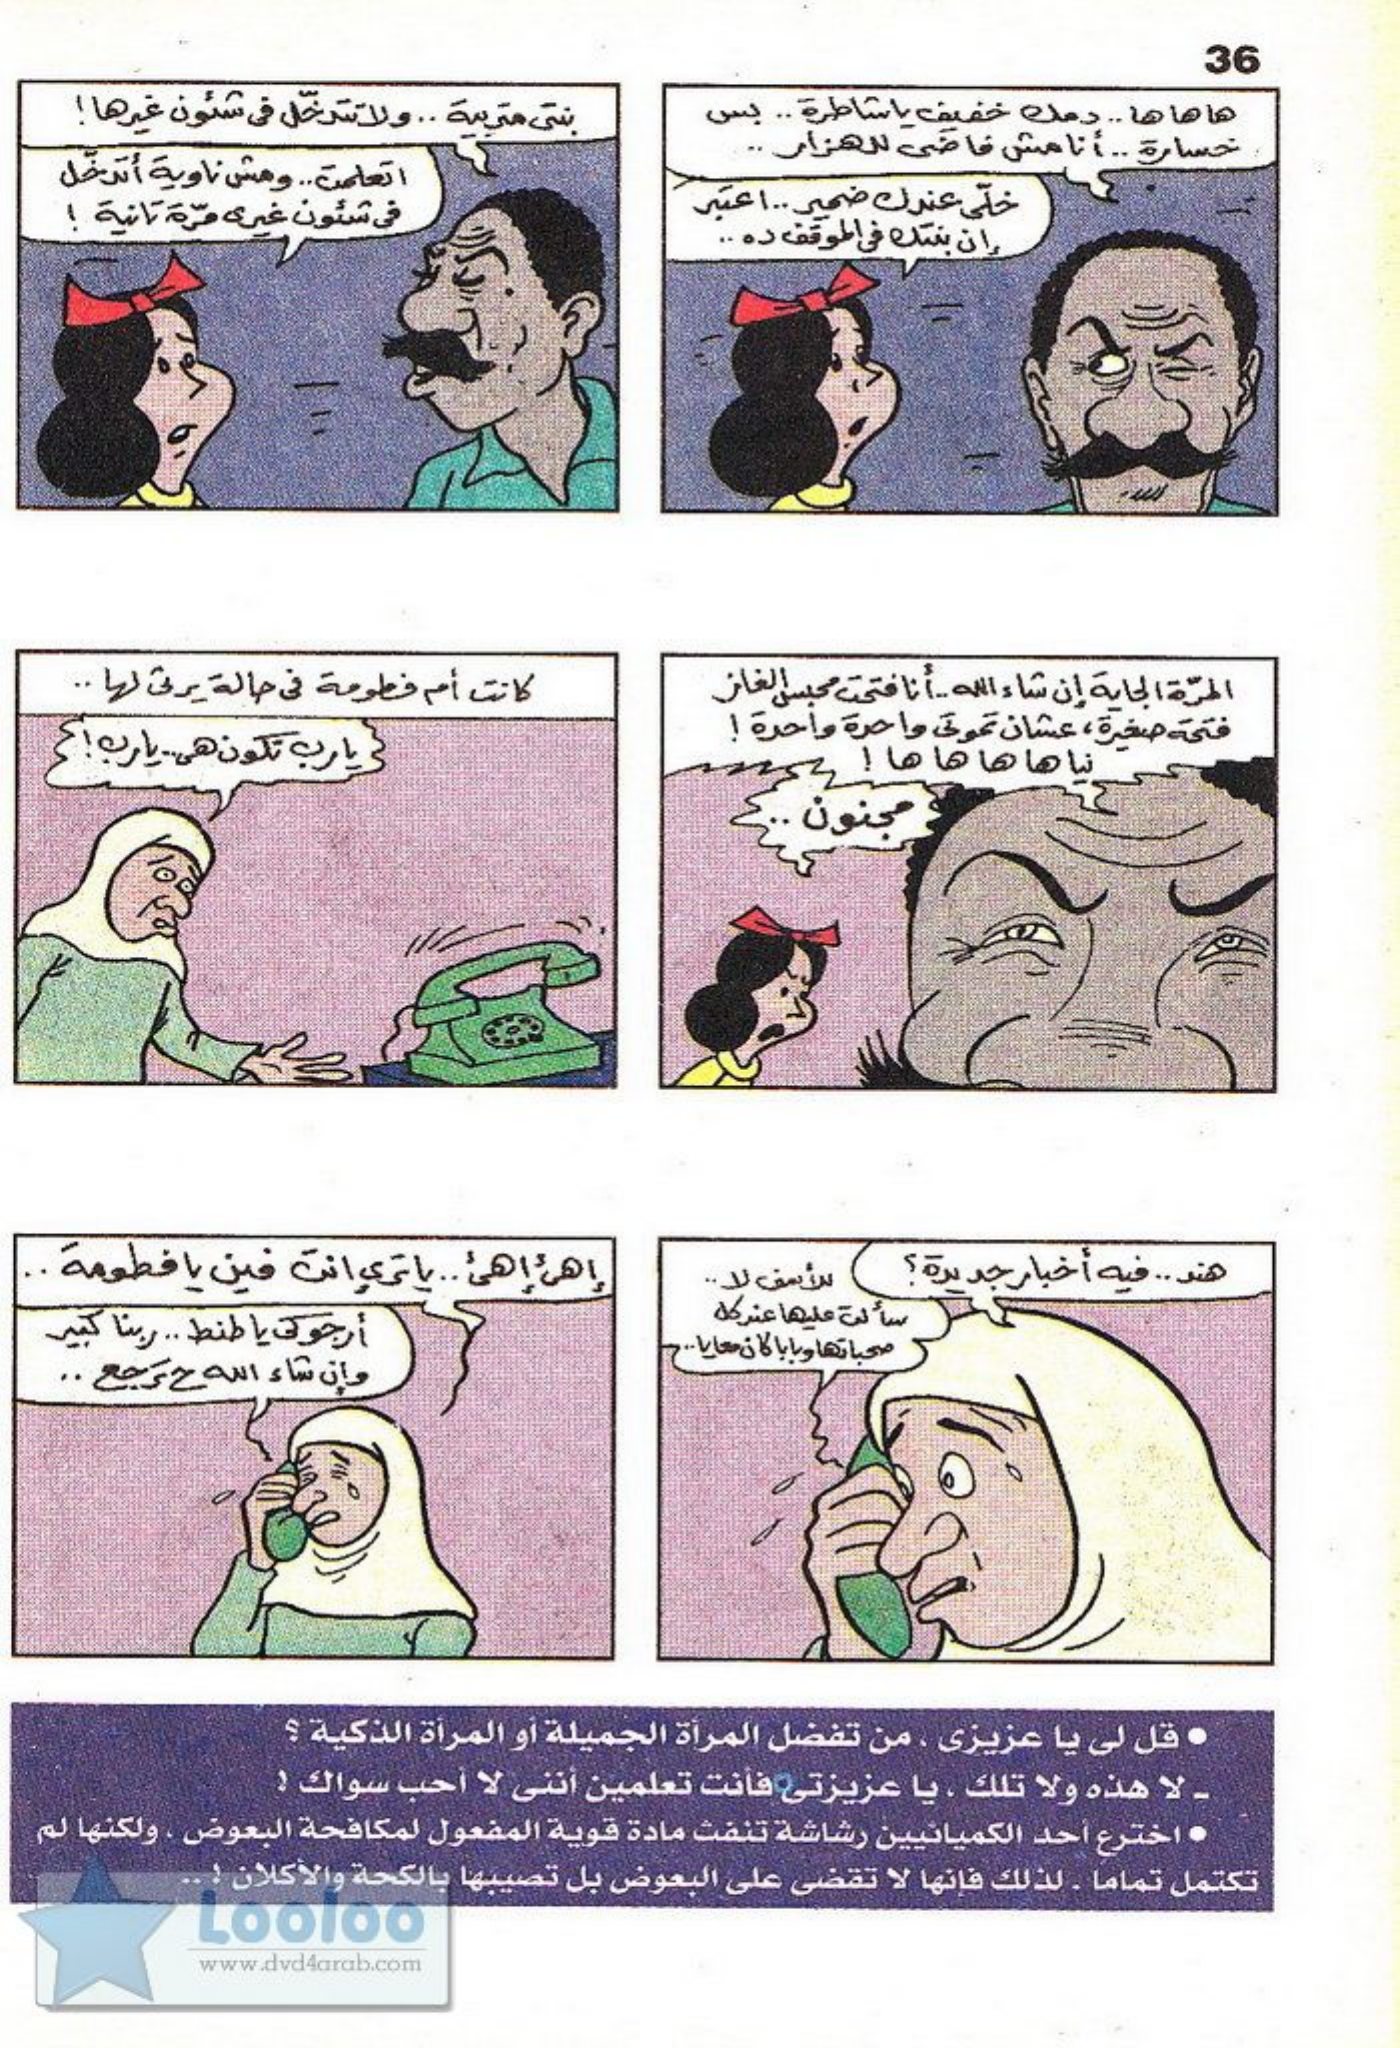 36
ها ها ها .. دمك خفيف يا شاطرة .. بس
خسارة .. أنا مش فاضى للهزار ..
خلّى عندك ضمير .. اعتبر
إن بنتك فى الموقف ده ..
بنتى متربية .. ولا تتدخّل فى شئون غيرها !
اتعلمت .. ومش ناوية أتدخّل
فى شئون غيرى مرّة تانية !
المرّة الجاية إن شاء الله .. أنا فتحت محبس الغاز
فتحة صغيرة ، عشان تموتى واحدة واحدة !
نيا ها ها ها ها !
مجنون ..
كانت أم فطومة فى حالة يرثى لها ..
يارب تكون هى .. يارب !
هند .. فيه أخبار جديدة ؟
للأسف لا ..
سألت عليها عند كل
صحباتها وبابا كان معايا ..
إهئ إهئ .. يا ترى إنت فين يا فطومة ..
أرجوكى يا طنط .. ربنا كبير
وإن شاء الله ح ترجع ..
● قل لى يا عزيزى ، من تفضل المرأة الجميلة أو المرأة الذكية ؟
ـ لا هذه ولا تلك ، يا عزيزتى فأنت تعلمين أننى لا أحب سواك !
● اخترع أحد الكميائيين رشاشة تنفث مادة قوية المفعول لمكافحة البعوض ، ولكنها لم
تكتمل تماما . لذلك فإنها لا تقضى على البعوض بل تصيبها بالكحة والأكلان ! ..
Looloo
www.dvd4arab.com